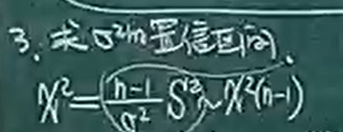 3. 求 σ²的置信区间.
χ² = n-1/σ² S² ~ χ²(n-1)